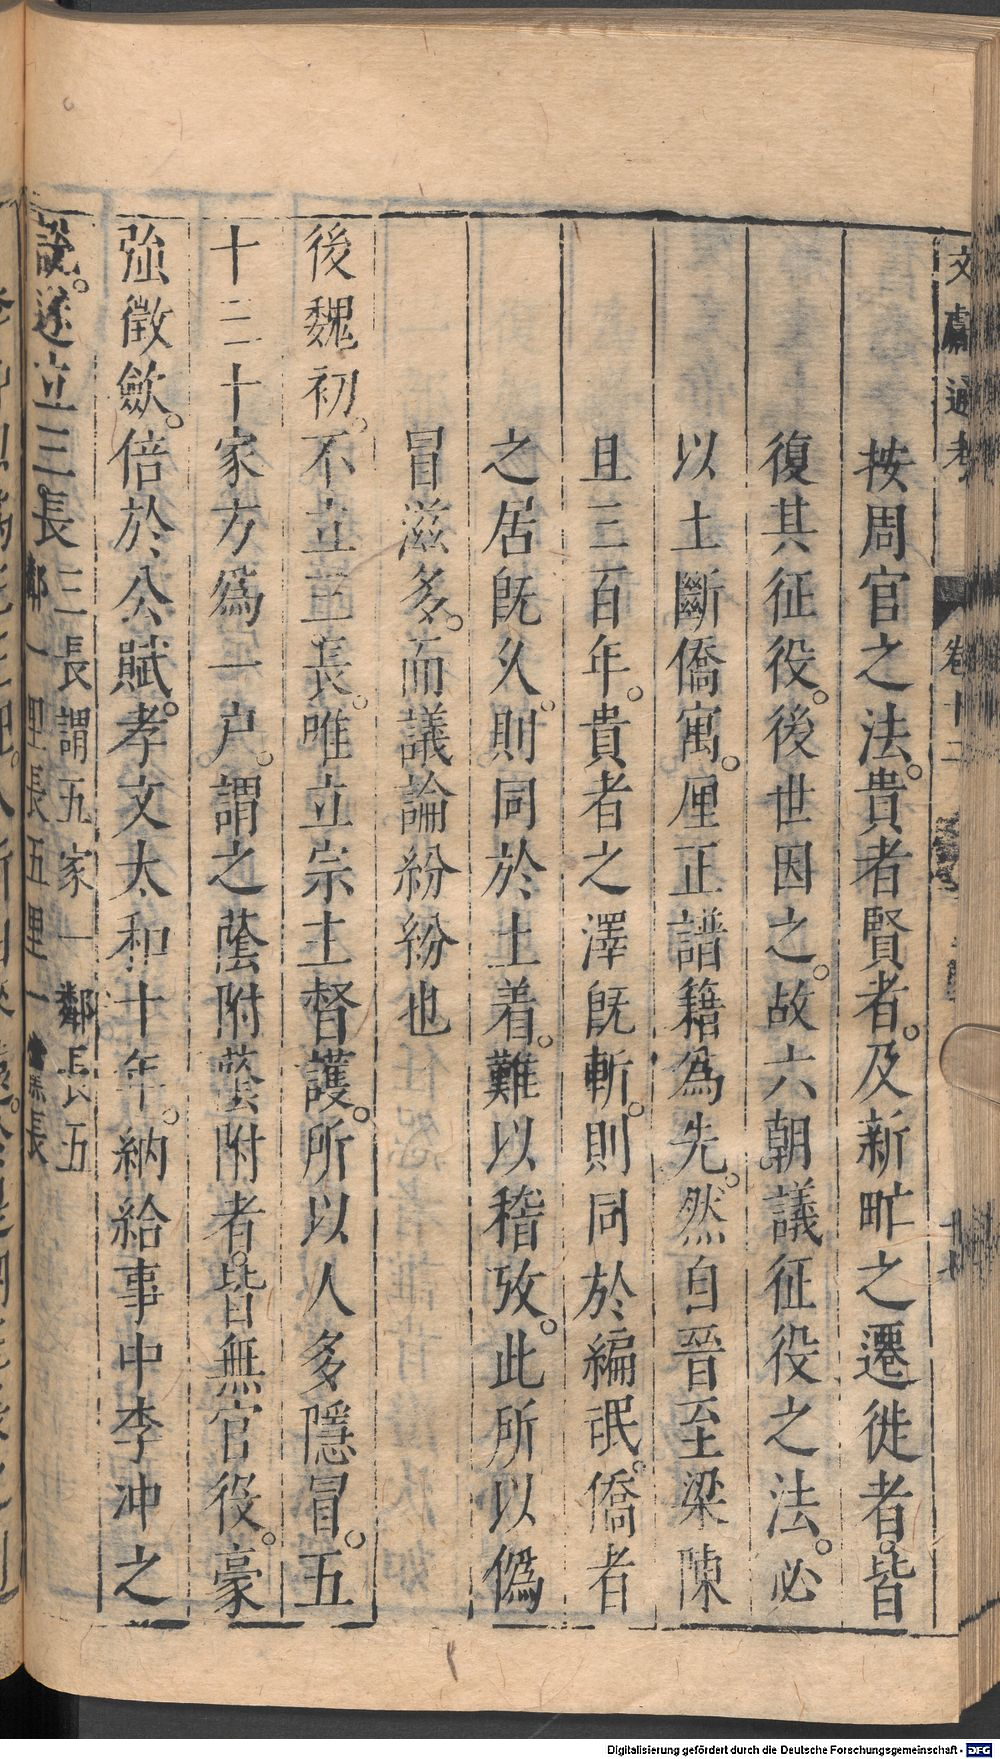 文獻通考 卷十二
按周官之法。貴者賢者。及新甿之遷徙者。皆
復其征役。後世因之。故六朝議征役之法。必
以土斷僑寓。厘正譜籍為先。然自晉至梁陳
且三百年。貴者之澤既斬。則同於編氓。僑者
之居既久。則同於土着。難以稽攷。此所以僞
冒滋多。而議論紛紛也
後魏初。不立三長。唯立宗主督護。所以人多隱冒。五
十三十家方爲一户。謂之蔭附蔭附者。皆無官役。豪
強徵斂。倍於公賦。孝文太和十年。納給事中李冲之
說。遂立三長三長謂五家一鄰長五
鄰一里長五里一黨長
Digitalisierung gefördert durch die Deutsche Forschungsgemeinschaft - DFG